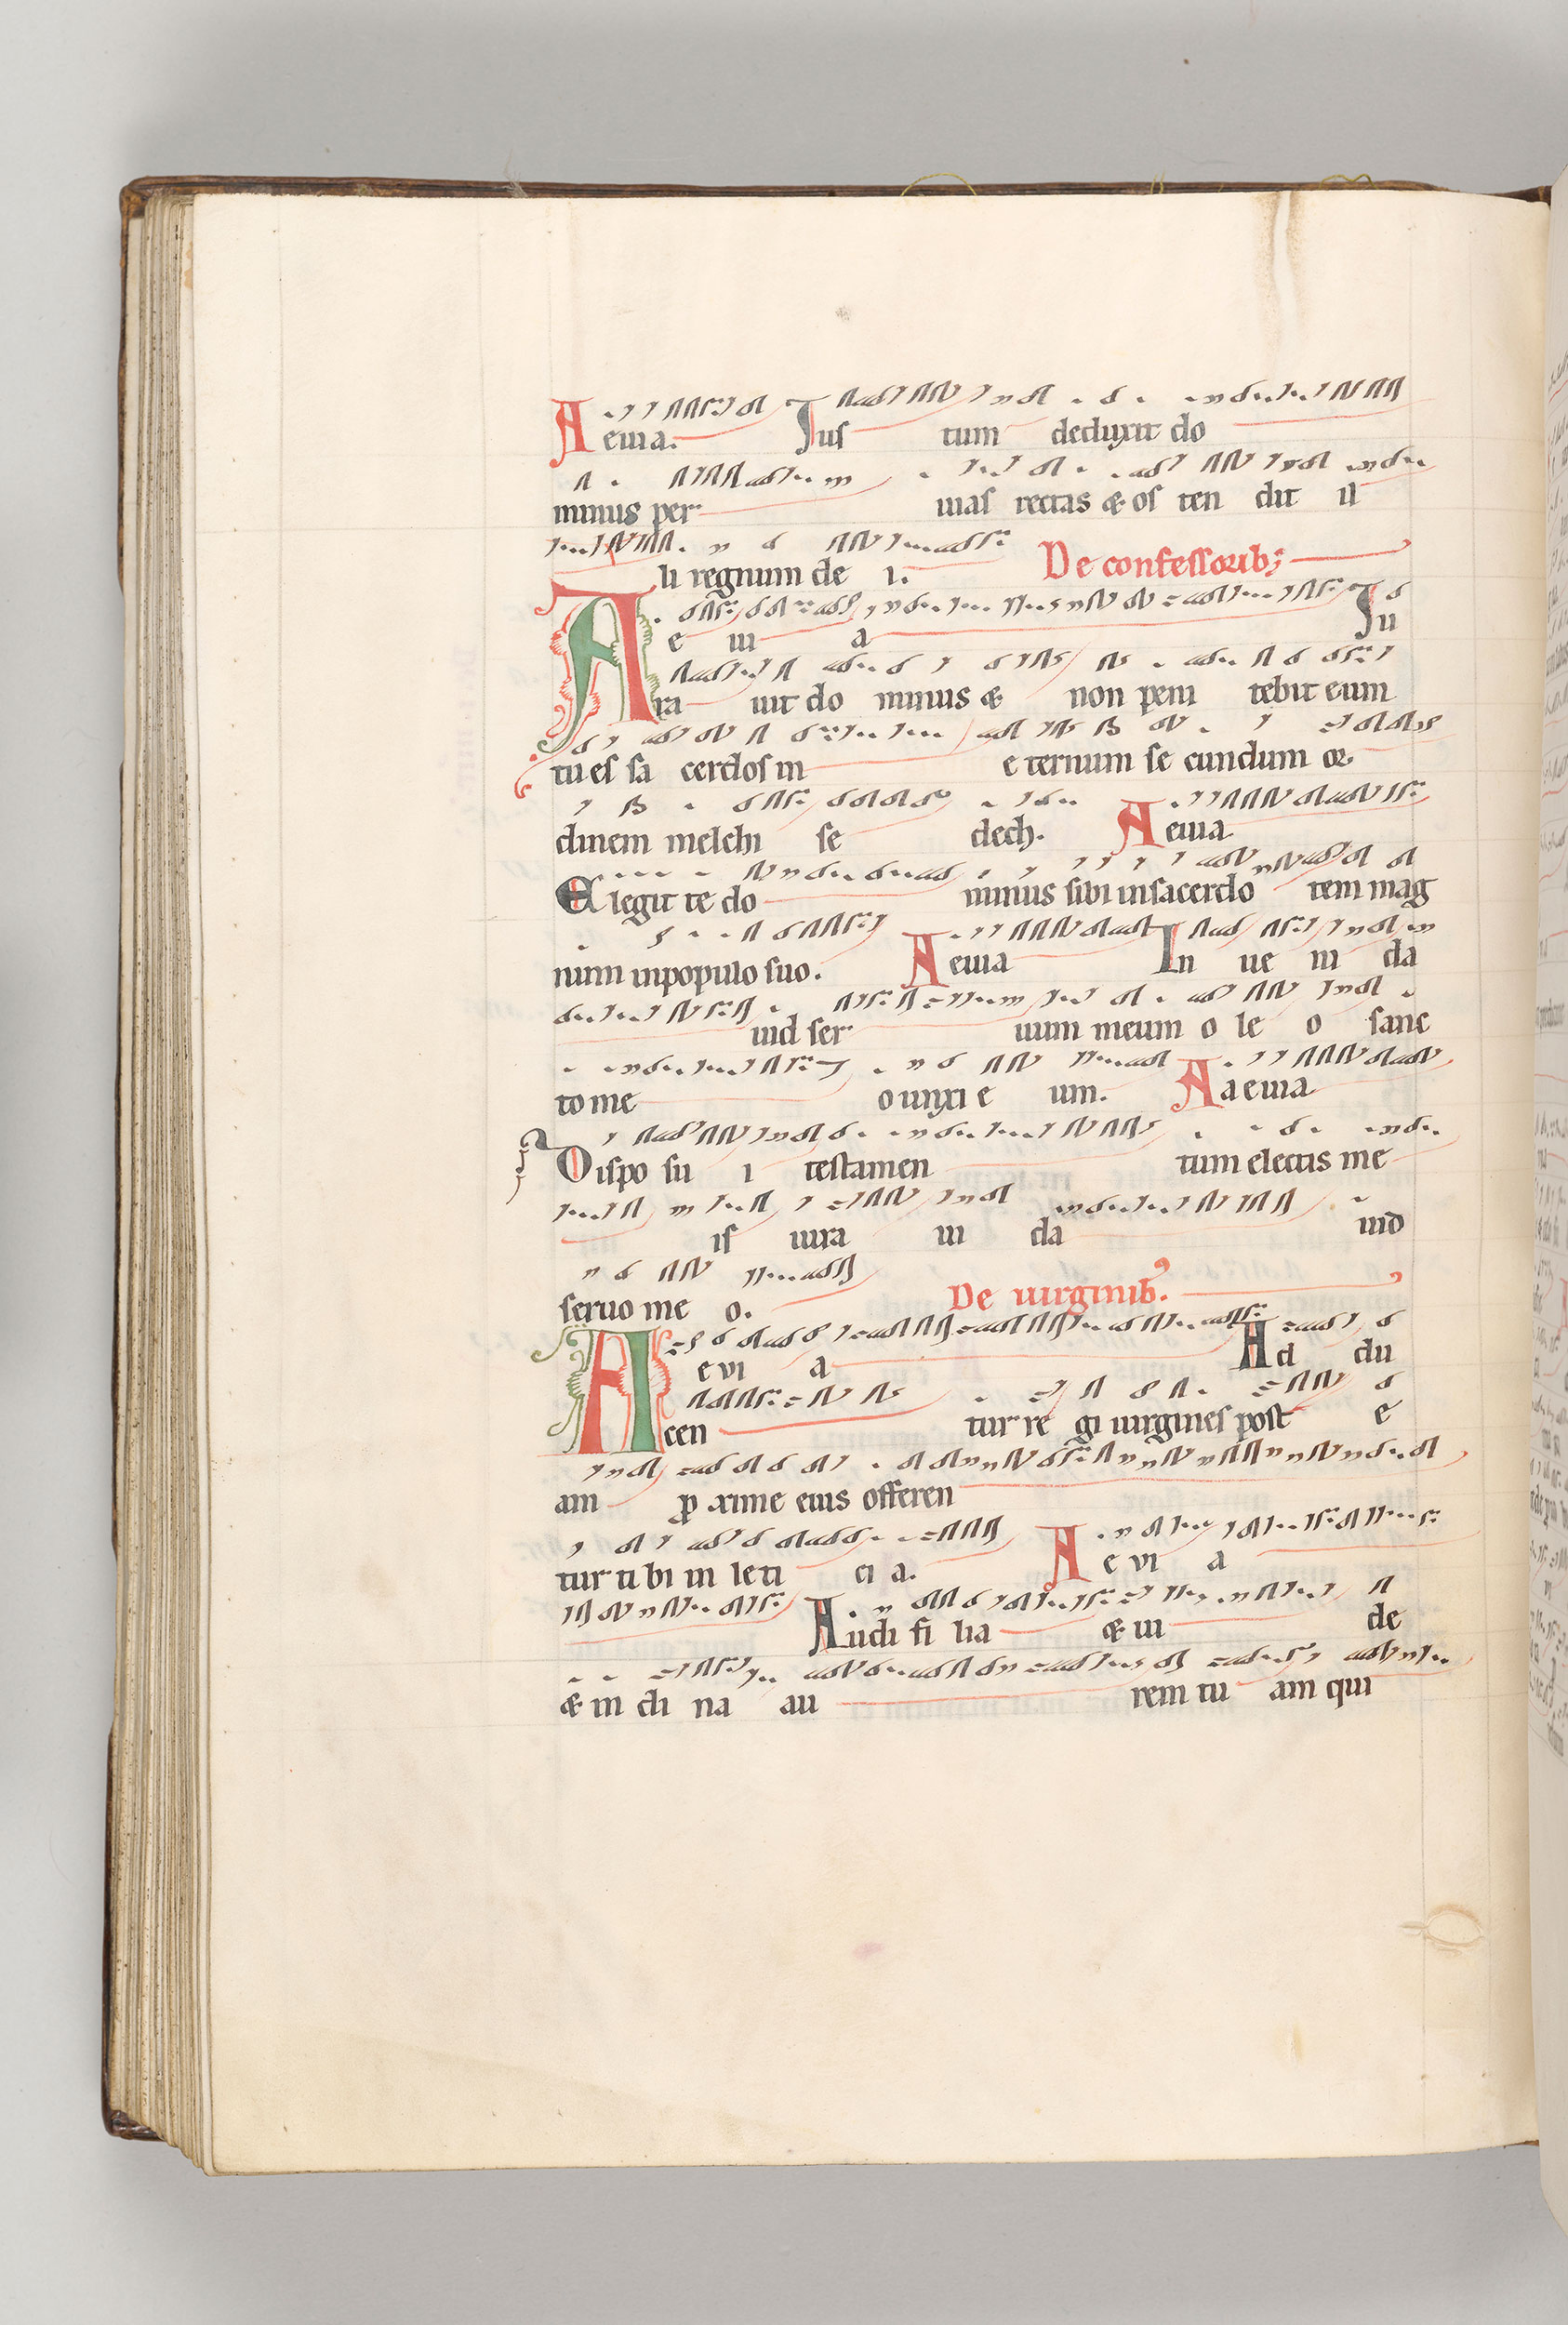 Aeuia. Ius tum deduxit do
minus per uias rectas & os ten dit il
li regnum de i. De confessorib;
A e ui a Iu
ra uit do minus & non peni tebit eum
tu es sa cerdos in e ternum se cundum or
dinem melchi se dech. Aeuia
Elegit te do minus sibi insacerdo tem mag
num inpopulo suo. Aeuia In ue ni da
uid ser uum meum o le o sanc
to me o unxi e um. Aaeuia
Dispo su i testamen tum electis me
is iura ui da uid
seruo me o. De uirginib.
A e vi a Ad du
cen tur re gi uirgines post e
am p xime eius offeren
tur ti bi in leti ci a. A e vi a
Audi fi lia & ui de
& in cli na au rem tu am qui